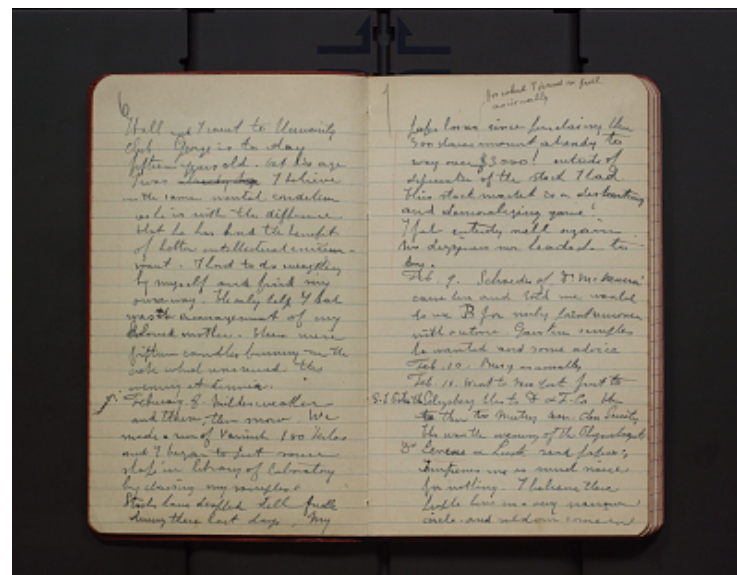 6
Hall and I went to University
Club. George is to day
fifteen years old. At his age
I was already I believe
in the same mental condition
as he is with the difference
that he has had the benefit
of better intellectual environ-
ment. I had to do everything
by myself and find my
own way. The only help I had
was the encouragement of my
beloved mother. There were
fifteen candles burning on the
cake which was used this
evening at dinner.
February 8. Milder weather
and then snow. We
made a run of Varnish 180 kilos
and I began to put some
in library of laboratory
by classing my samples
Stocks have dropped still further
during these last days. My
7
for which I found no fault
paper losses since purchasing the
500 shares amount already to
way over $3000! outside of
of the stock I had
This stock market is a
and demoralizing game!
I feel entirely well again
no dizziness nor headache to
day.
Feb. 9. Schraeder of Dr McKenna
came here and told me wanted
to use B for
Gave him samples
he wanted and some advice
Feb. 10. Busy as usually
Feb. 11. Went to New York first to
to then to Meeting Am. Chem Society
this was the meeting of the
Dr Levene &amp; Lusk read papers,
Impress me as much noise
for nothing. I believe these
people live in a very narrow
circle and seldom come out